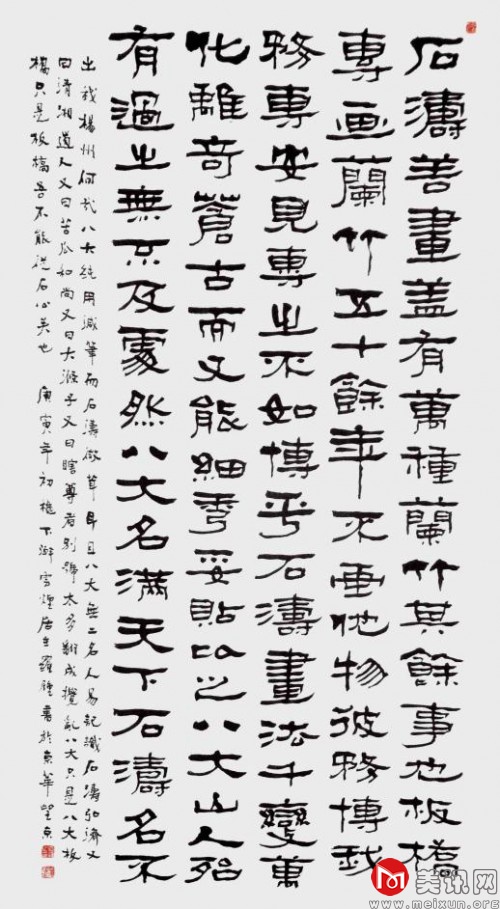 石濤善畫盖有萬種蘭竹其餘事也板橋
專画蘭竹五十餘年不画他物彼務博我
務專安見專之不如博乎石濤畫法千變萬
化離奇蒼古而又能細秀妥貼比之八大山人殆
有過之無不及處然八大名滿天下石濤名不
出我楊州何哉八大純用減筆而石濤微茸耳且八大無二名人易記識石濤弘濟又
曰清湘道人又曰苦瓜和尚又曰大滌子又曰瞎尊者別號太多翻成攪亂八大只是八大板
橋只是板橋吾不能從石公矣也 庚寅年初 書於京華望京
美讯网
www.meixun.org